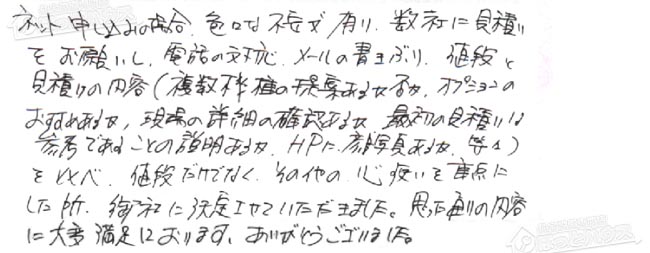 ネット申し込みの場合、色々な不安が有り、数社に見積り
をお願いし、電話の対応、メールの書きぶり、値段と
見積りの内容(複数機種の提案あるか否か、オプションの
おすすめあるか、現場の詳細の確認あるか、最初の見積りは
参考であることの説明あるか、HPに顔写真あるか、等々)
をくらべ、値段だけでなく、その他の心使いを重点に
した所、御社に決定させていただきました。思った通りの内容
に大変満足しております、ありがとうございました。